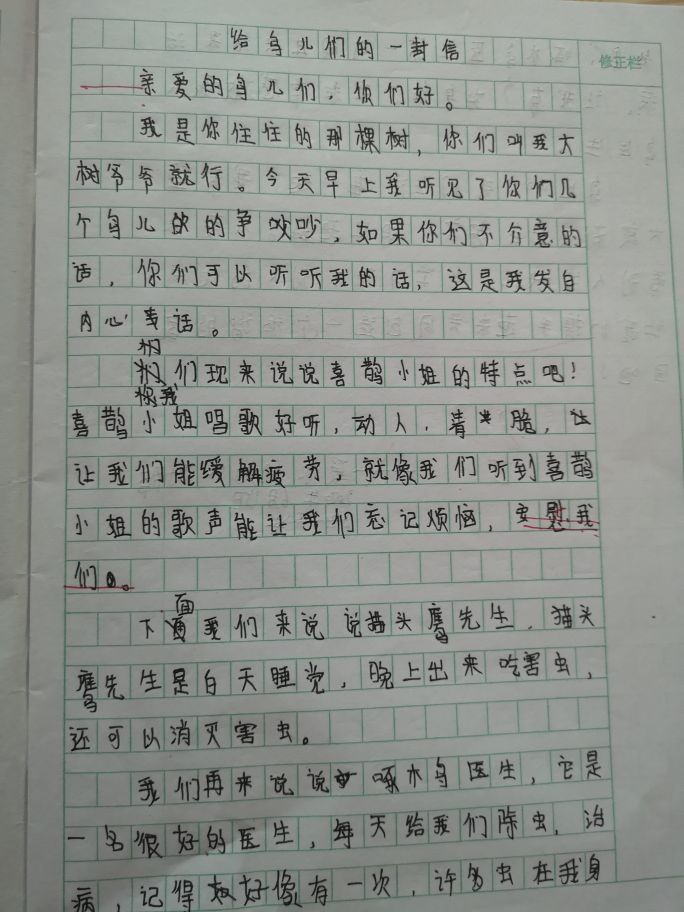 给鸟儿们的一封信
修正栏
亲爱的鸟儿们，你们好。
我是你住住的那棵树，你们叫我大
树爷爷就行。今天早上我听见了你们几
个鸟儿的争吵吵，如果你们不介意的
话，你们可以听听我的话，这是我发自
内心话。
们现来说说喜鹊小姐的特点吧！
你我
喜鹊小姐唱歌好听，动人，清脆，
让我们能缓解疲劳，就像我们听到喜鹊
小姐的歌声能让我们忘记烦恼，安慰我
们。
下面我们来说说猫头鹰先生，猫头
鹰先生是白天睡觉，晚上出来吃害虫，
还可以消灭害虫。
我们再来说说啄木鸟医生，它是
一名很好的医生，每天给我们除虫，治
病，记得好像有一次，许多虫在我身